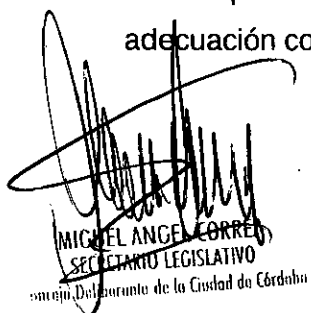 adecuación co
MIGUEL ANGEL CORREA
SECRETARIO LEGISLATIVO
Concejo Deliberante de la Ciudad de Córdoba